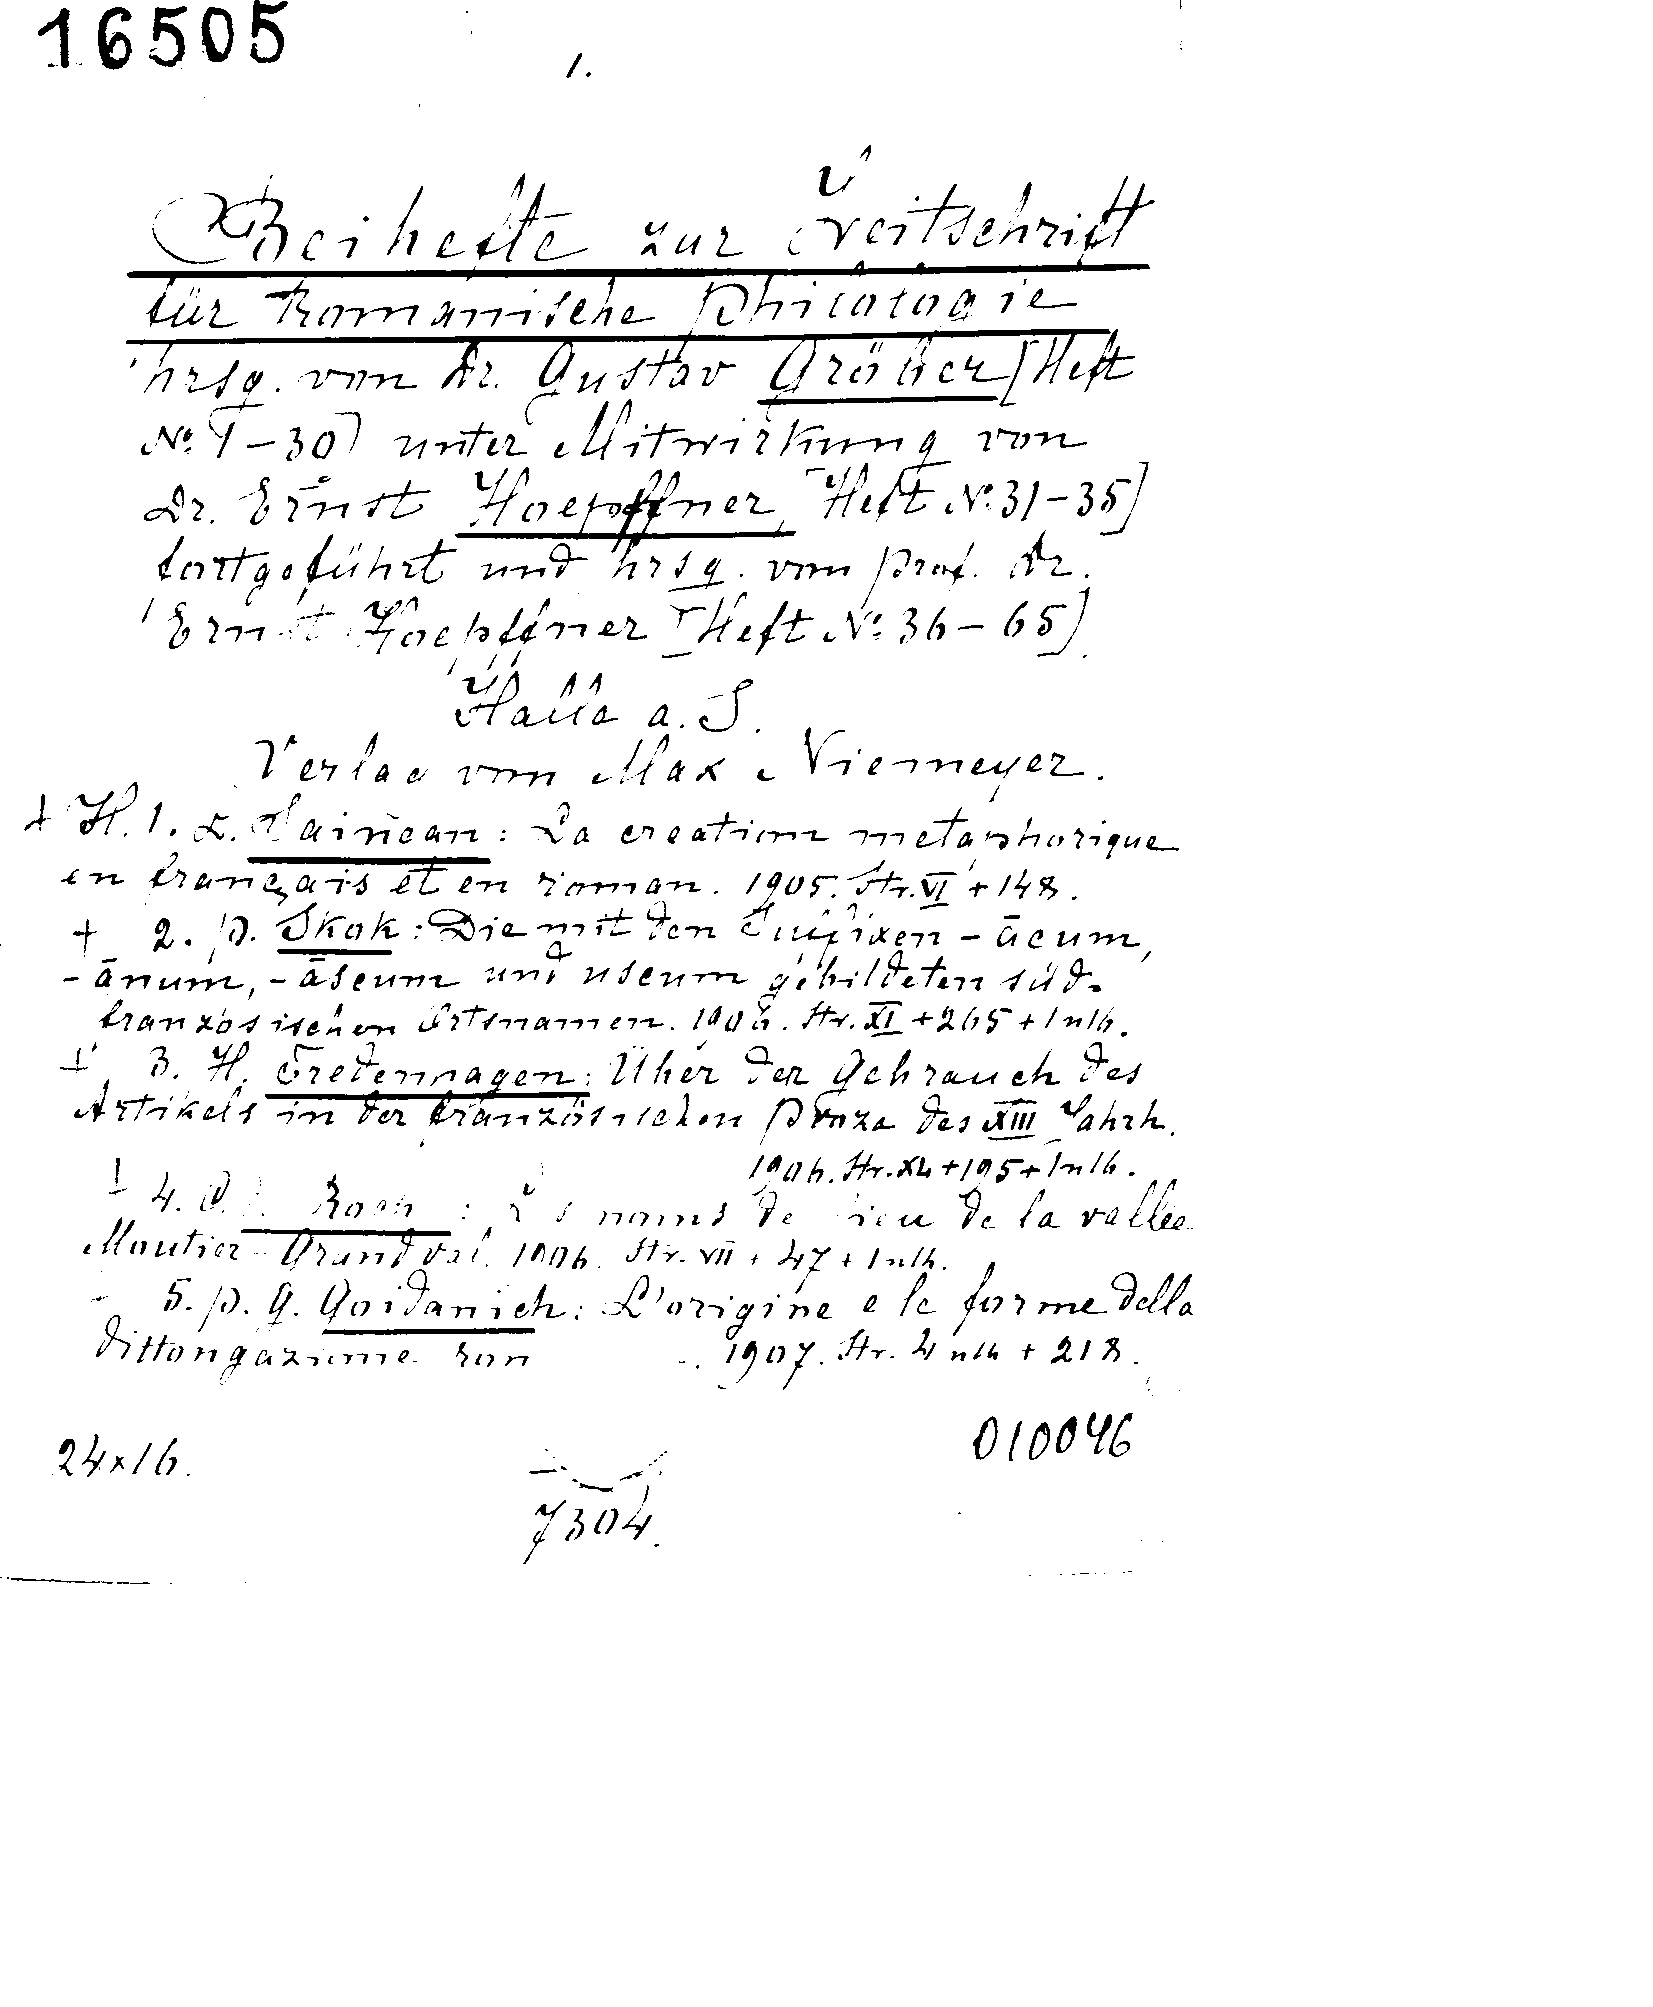 16505
1.
Beihefte zur Zeitschrift
für Romanische Philologie
hrsg. von Dr. Gustav Gröber [Heft
No. 1-30] unter Mitwirkung von
Dr. Ernst Hoepffner, [Heft No. 31-35]
fortgeführt und hrsg. von Prof. Dr.
Ernst Hoepffner [Heft No. 36-65].
Halle a. S.
Verlag von Max Niemeyer.
+ H. 1. L. Sainéan: La creation metaphorique
en français et en roman. 1905. Str. VI + 148.
+ 2. P. Skok: Die mit den Suffixen -ācum,
-ānum, -āscum und uscum gebildeten süd-
französischen Ortsnamen. 1906. Str. XI + 265 + 1 nlb.
+ 3. H. Über der Gebrauch des
Artikels in der französischen Proza des XIII Jahrh.
1906. Str. XL + 195 + 1 nlb.
+ 4. noms de lieu de la vallée
Moutier-Grandval. 1906. Str. VII + 47 + 1 nlb.
5. P. G. Goidanich: L'origine e le forme della
dittongazione rom 1907. Str. 4 nlb + 218.
24x16.
010046
7304.